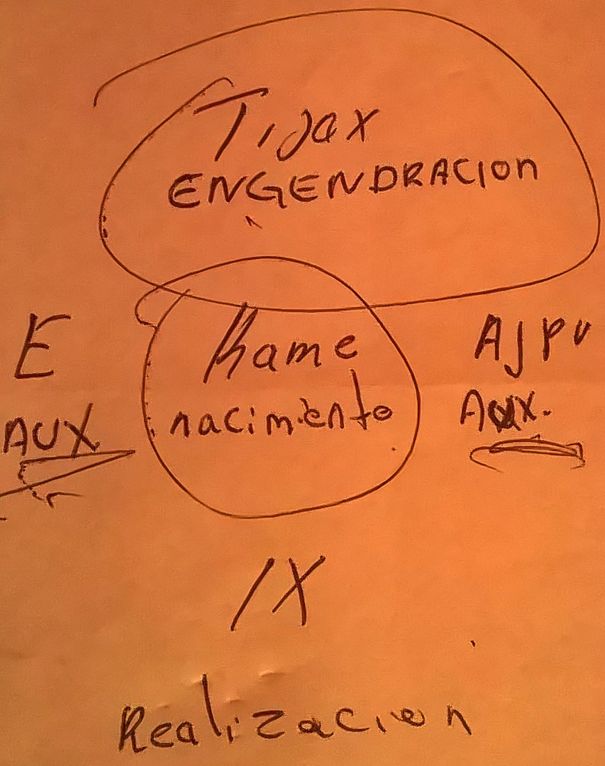 Tijax
ENGENDRACION
E
AUX
Kame
nacimiento
AJPU
AUX.
IX
Realizacion